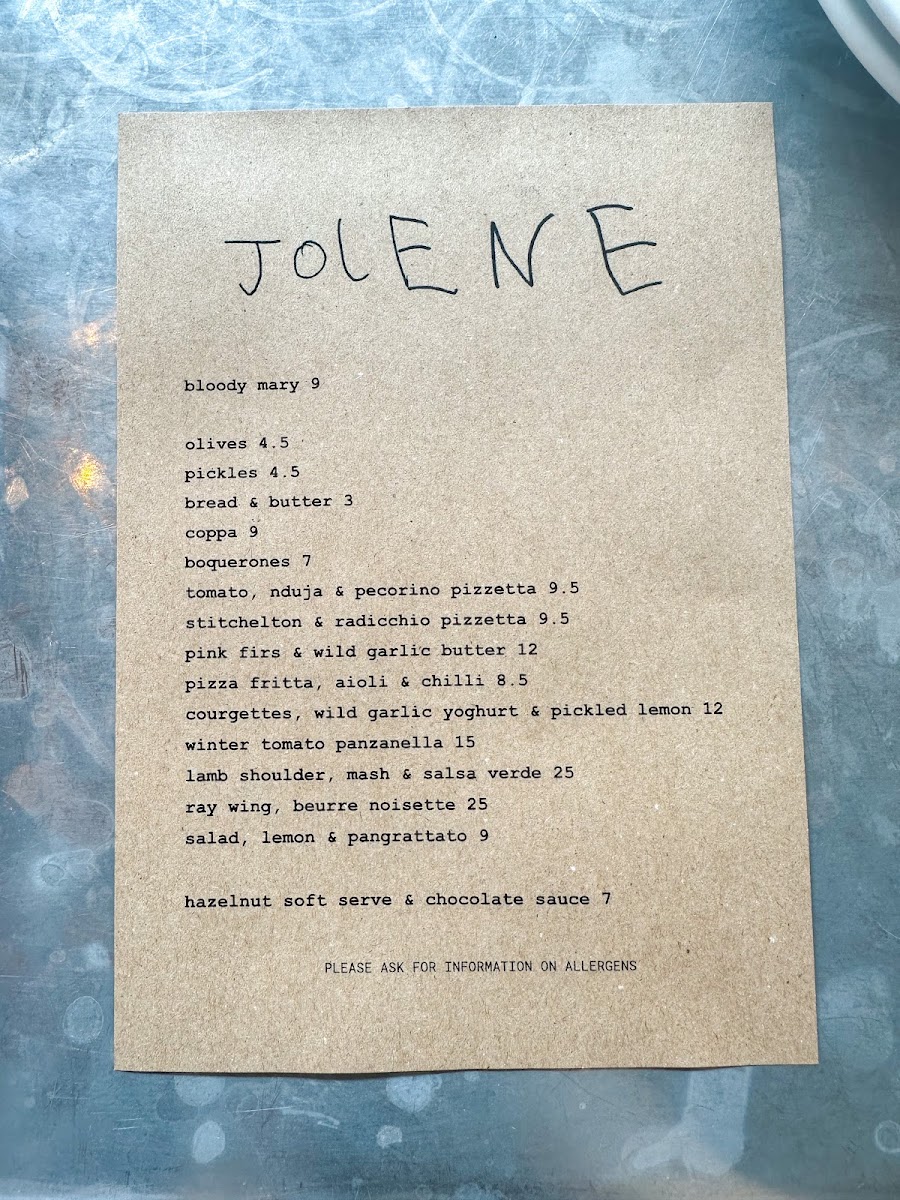 JOlENE
bloody mary 9
olives 4.5
pickles 4.5
bread & butter 3
coppa 9
boquerones 7
tomato, nduja & pecorino pizzetta 9.5
stitchelton & radicchio pizzetta 9.5
pink firs & wild garlic butter 12
pizza fritta, aioli & chilli 8.5
courgettes, wild garlic yoghurt & pickled lemon 12
winter tomato panzanella 15
lamb shoulder, mash & salsa verde 25
ray wing, beurre noisette 25
salad, lemon & pangrattato 9
hazelnut soft serve & chocolate sauce 7
PLEASE ASK FOR INFORMATION ON ALLERGENS